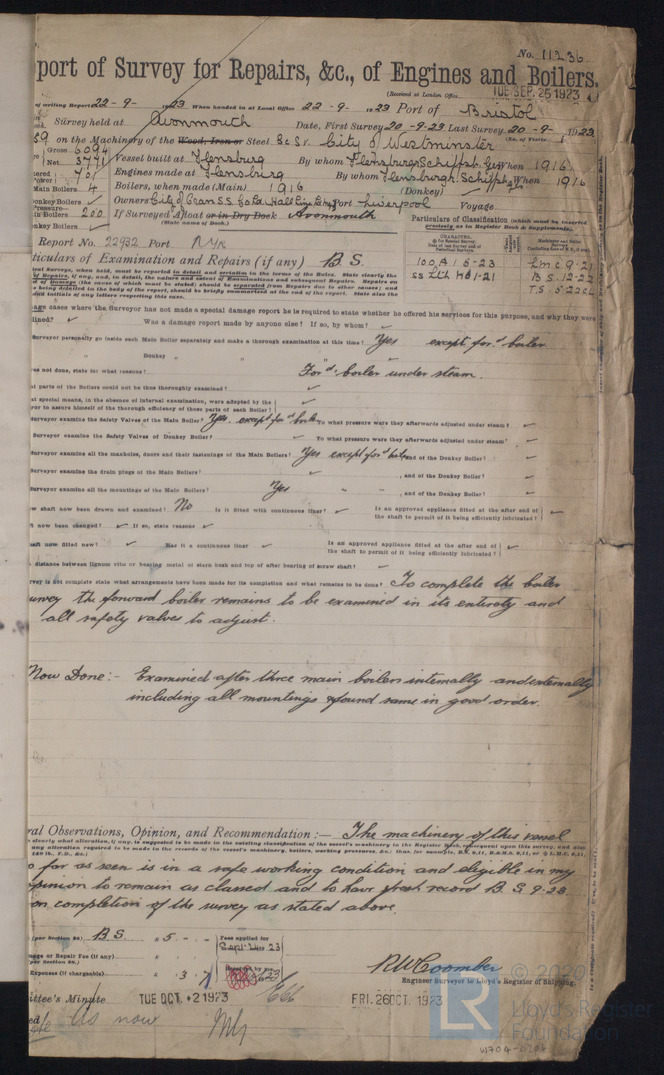 No. 11236
port of Survey for Repairs, &c., of Engines and Boilers.
(Received at London Office
TUE. SEP. 25 1923
of writing Report 22-9-1923 When handed in at Local Office 22-9-1923 Port of Bristol
Survey held at Avonmouth Date, First Survey 20-9-23 Last Survey 20-9-1923
(No. of Visits
59 on the Machinery of the Wood, Iron or Steel Sc Sr. City of Westminster
Gross 6094
Net 3771
Vessel built at Flensburg By whom Flensburger Schiffsb. Ges When 1916
Engines made at Flensburg By whom Flensburgr. Schiffsb. Ges When 1916
Main Boilers 4 Boilers, when made (Main) 1916 (Donkey) ✓
Donkey Boilers ✓ Owners City of Oran S.S. Co Ld. Hall Line Ltd Port Liverpool Voyage
Boilers 200 If Surveyed Afloat or in Dry Dock Avonmouth
(State name of Dock.)
Particulars of Classification (which must be inserted
precisely as in Register Book & Supplements.
100A1 5-23
LMC 9-21
B.S. 12-22
T.S. 5-22 CL
Report No. 22932 Port NYk
ticulars of Examination and Repairs (if any) B S.
age cases where the Surveyor has not made a special damage report he is required to state whether he offered his services for this purpose, and why they were
lined? ✓ Was a damage report made by anyone else? If so, by whom? ✓
Surveyor personally go inside each Main Boiler separately and make a thorough examination at this time? Yes except for'd boiler
Donkey " " "
as not done, state for what reasons? For'd boiler under steam.
at parts of the Boilers could not be thoroughly examined? ✓
at special means, in the absence of internal examination, were adopted by the
yor to assure himself of the thorough efficiency of those parts of each Boiler? ✓
Surveyor examine the Safety Valves of the Main Boiler? Yes. except for'd boiler To what pressure were they afterwards adjusted under steam? ✓
Surveyor examine the Safety Valves of Donkey Boiler? ✓ To what pressure were they afterwards adjusted under steam? ✓
Surveyor examine all the manholes, doors and their fastenings of the Main Boilers? Yes except for'd boiler and of the Donkey Boiler? ✓
Surveyor examine the drain plugs of the Main Boilers? ✓ , and of the Donkey Boiler? ✓
Surveyor examine all the mountings of the Main Boilers? Yes " " , and of the Donkey Boiler? ✓
w shaft now been drawn and examined? No Is it fitted with continuous liner? ✓ Is an approved appliance fitted at the after end of
the shaft to permit of it being efficiently lubricated? ✓
ft now been changed? ✓ If so, state reasons ✓
haft now fitted new? ✓ Has it a continuous liner ✓ Is an approved appliance fitted at the after end of
the shaft to permit of it being efficiently lubricated? ✓
distance between lignum vitæ or bearing metal of stern bush and top of after bearing of screw shaft? ✓
rvey is not complete state what arrangements have been made for its completion and what remains to be done? To complete the boiler
urvey the forward boiler remains to be examined in its entirety and
all safety valves to adjust.
Now Done:- Examined after three main boilers internally and externally
including all mountings & found same in good order.
ral Observations, Opinion, and Recommendation:— The machinery of this vessel
so far as seen is in a safe working condition and eligible in my
opinion to remain as classed and to have fresh record B.S. 9-23.
on completion of the survey as stated above.
(per Section 28) B.S. £ 5 - -
Fees applied for
Sept 24 23
age or Repair Fee (if any) £
(per Section 28.)
Received by me
Expenses (if chargeable) £ 3
R W Coomber
Engineer Surveyor to Lloyd's Register of Shipping.
ittee's Minute TUE. OCT. 2 1923 FRI. 26 OCT. 1923
As now
© 2020
Lloyd's Register
Foundation
W704-0204